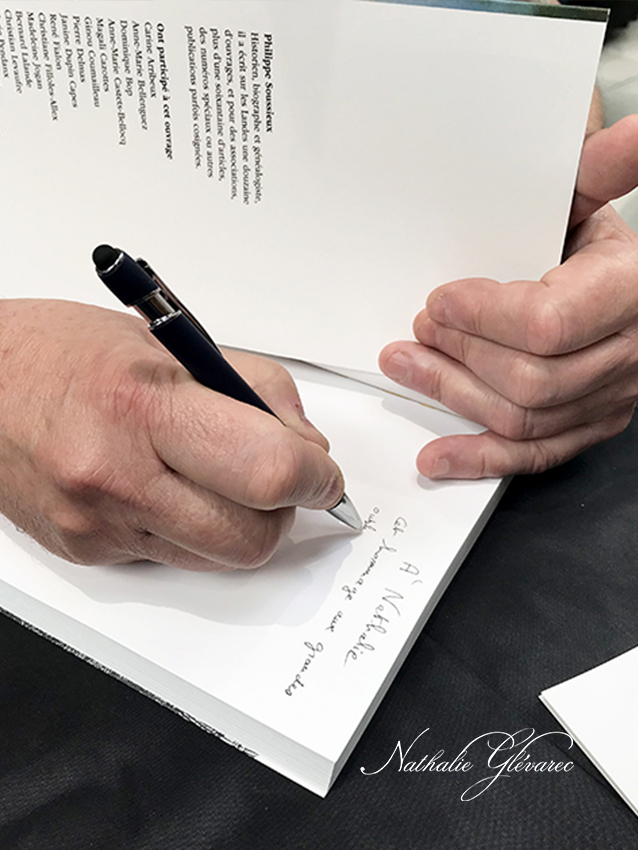 Philippe Soussieux
Historien, biographe et généalogiste,
il a écrit sur les Landes une douzaine
d'ouvrages, et pour des associations,
plus d'une soixantaine d'articles,
des numéros spéciaux ou autres
publications parfois cosignées.
Ont participé à cet ouvrage
Carine Arribeux
Anne-Marie Bellenguez
Dominique Bop
Anne-Marie Castets-Bellocq
Magali Cazottes
Ginou Coumailleau
Pierre Delmas
Janine Dupin Capes
René Fialon
Christiane Filloles-Allex
Madeleine Jogan
Bernard Lalande
Christian Levaufre
Pendanx
A Nathalie
Cet hommage aux grandes
Nathalie Glévarec